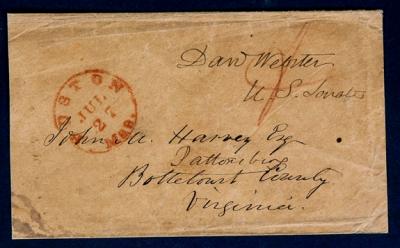 Danl Webster
U.S. Senate
BOSTON
JUL
27
Mas.
John M. Harvey Esq
Pattonsburg
Bottetourt County
Virginia.